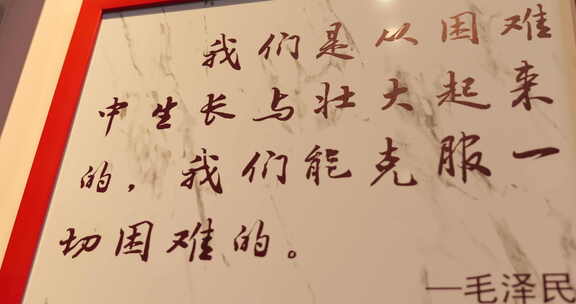 我们是从困难
中生长与壮大起来
的，我们能克服一
切困难的。
—毛泽民